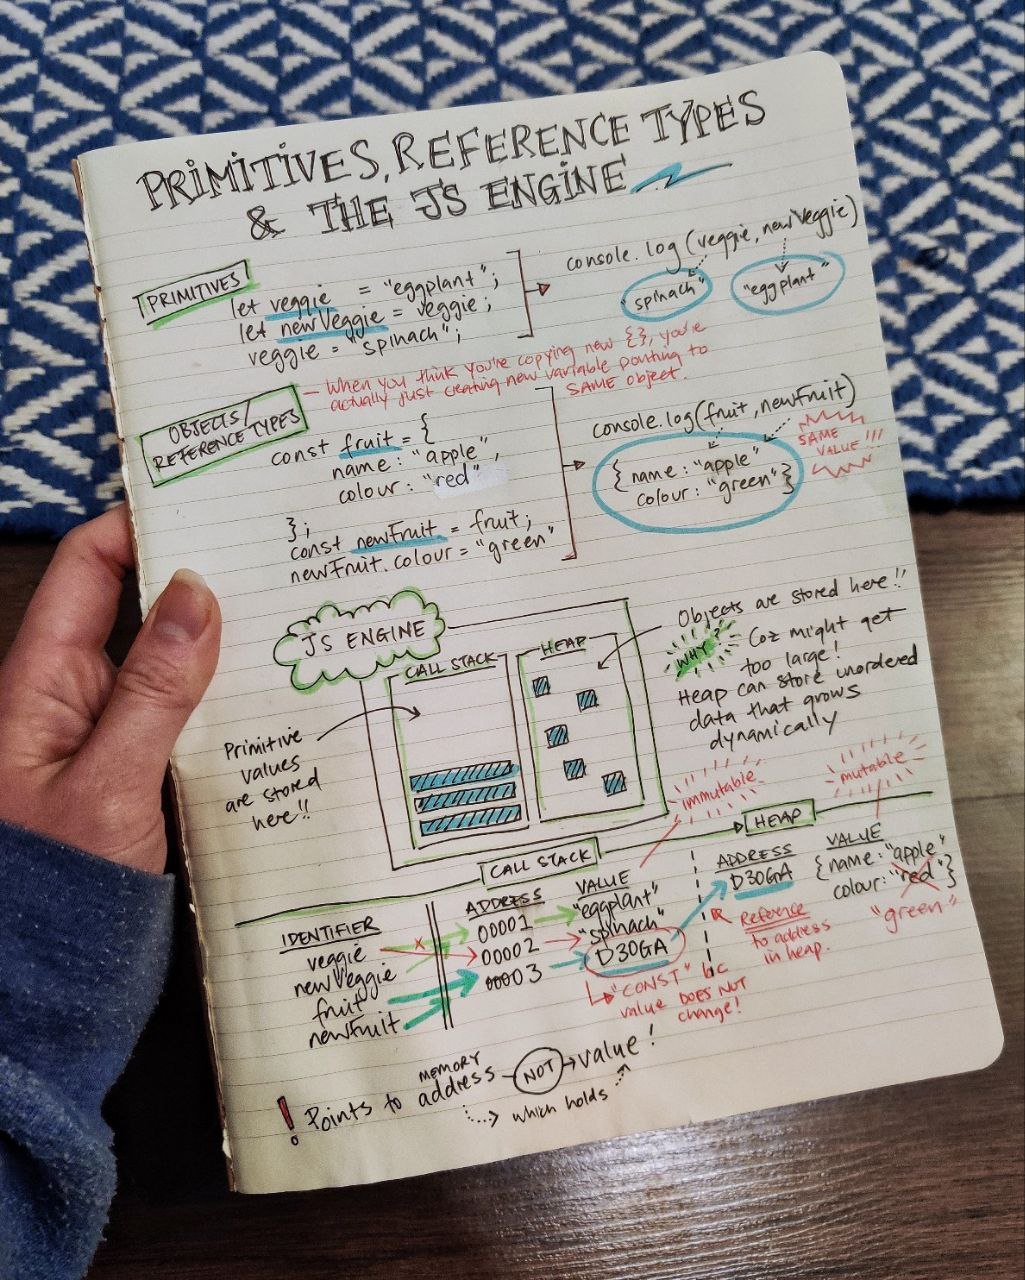 PRIMITIVES, REFERENCE TYPES
& THE JS ENGINE
PRIMITIVES
let veggie = "eggplant";
let newVeggie = veggie;
veggie = "spinach";
console.log(veggie, newVeggie)
"spinach" "eggplant"
OBJECTS/
REFERENCE TYPES
- When you think you're copying new {}, you're
actually just creating new variable pointing to
SAME object.
const fruit = {
name: "apple",
colour: "red"
};
const newFruit = fruit;
newFruit.colour = "green"
console.log(fruit, newFruit)
{name: "apple"
colour: "green"}
SAME
VALUE!!!
JS ENGINE
CALL STACK
HEAP
Primitive
values
are stored
here!!
Objects are stored here!!
WHY?
Coz might get
too large!
Heap can store unordered
data that grows
dynamically
immutable
mutable
CALL STACK
HEAP
IDENTIFIER
veggie
newVeggie
fruit
newFruit
ADDRESS
00001
00002
00003
VALUE
"eggplant"
"spinach"
D30GA
"CONST" bc
value DOES NOT
change!
ADDRESS
D30GA
Reference
to address
in heap.
VALUE
{name: "apple"
colour: "red"}
"green"
! Points to MEMORY address NOT value!
which holds